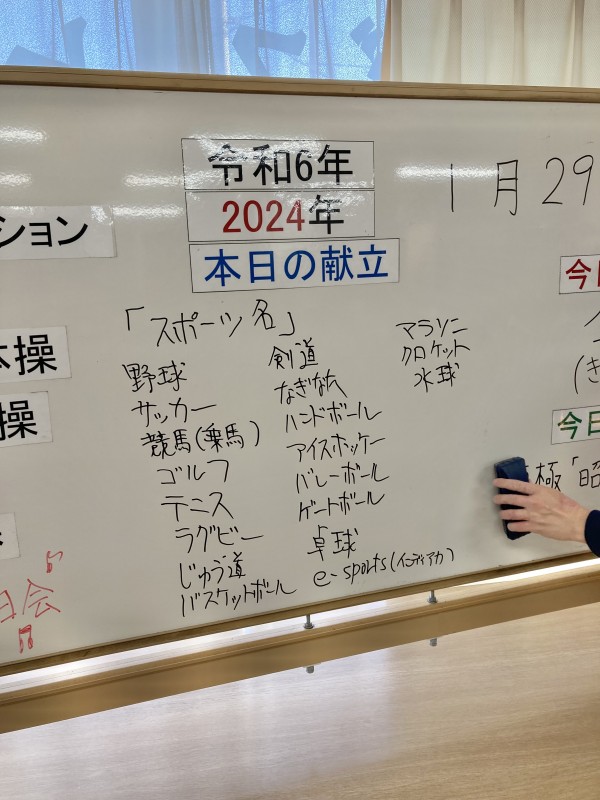 令和6年
2024年
本日の献立
1月29
ション
体操
操
「スポーツ名」
野球
サッカー
競馬(乗馬)
ゴルフ
テニス
ラグビー
じゅう道
バスケットボール
剣道
なぎなた
ハンドボール
アイスホッケー
バレーボール
ゲートボール
卓球
e-sports(インディアカ)
マラソン
クロケット
水球
今日
(き
今日
極「昭
日会